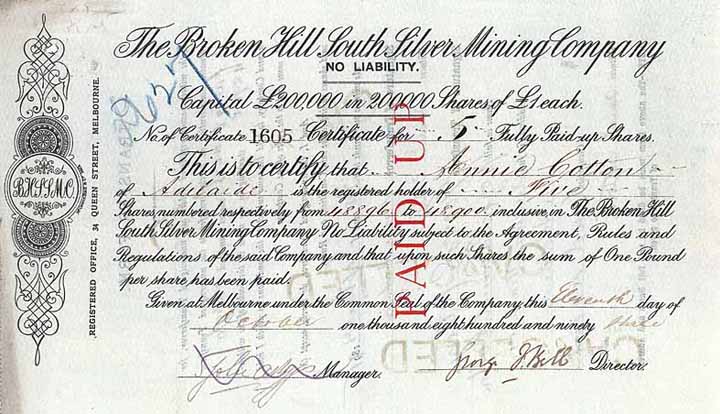 The Broken Hill South Silver Mining Company
NO LIABILITY.
Capital £200,000 in 200000 Shares of £1 each.
No. of Certificate 1605 Certificate for 5 Fully Paid-up Shares.
This is to certify that Annie Cotton
of Adelaide is the registered holder of Five
Shares numbered respectively from 48896 to 48900 inclusive, in The Broken Hill
South Silver Mining Company No Liability subject to the Agreement, Rules and
Regulations of the said Company and that upon such Shares the sum of One Pound
per share has been paid.
Given at Melbourne under the Common Seal of the Company this Eleventh day of
October one thousand eight hundred and ninety three
Manager. Director.
PAID UP
CANCELLED
CANCELLED
B.H.S.S.M.C.
REGISTERED OFFICE, 34 QUEEN STREET, MELBOURNE.